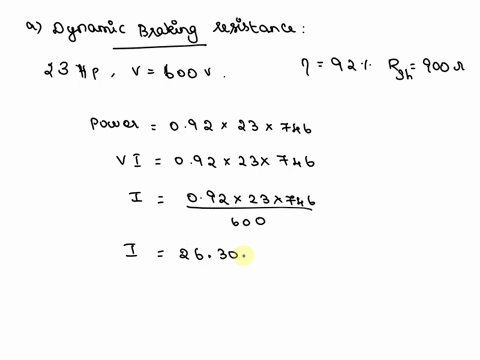 a) Dynamic Braking resistance:
23 Hp, V = 600 v.
η = 92% Rsh = 900 Ω
Power = 0.92 × 23 × 746
VI = 0.92 × 23 × 746
I = 0.92 × 23 × 746
600
I = 26.30.